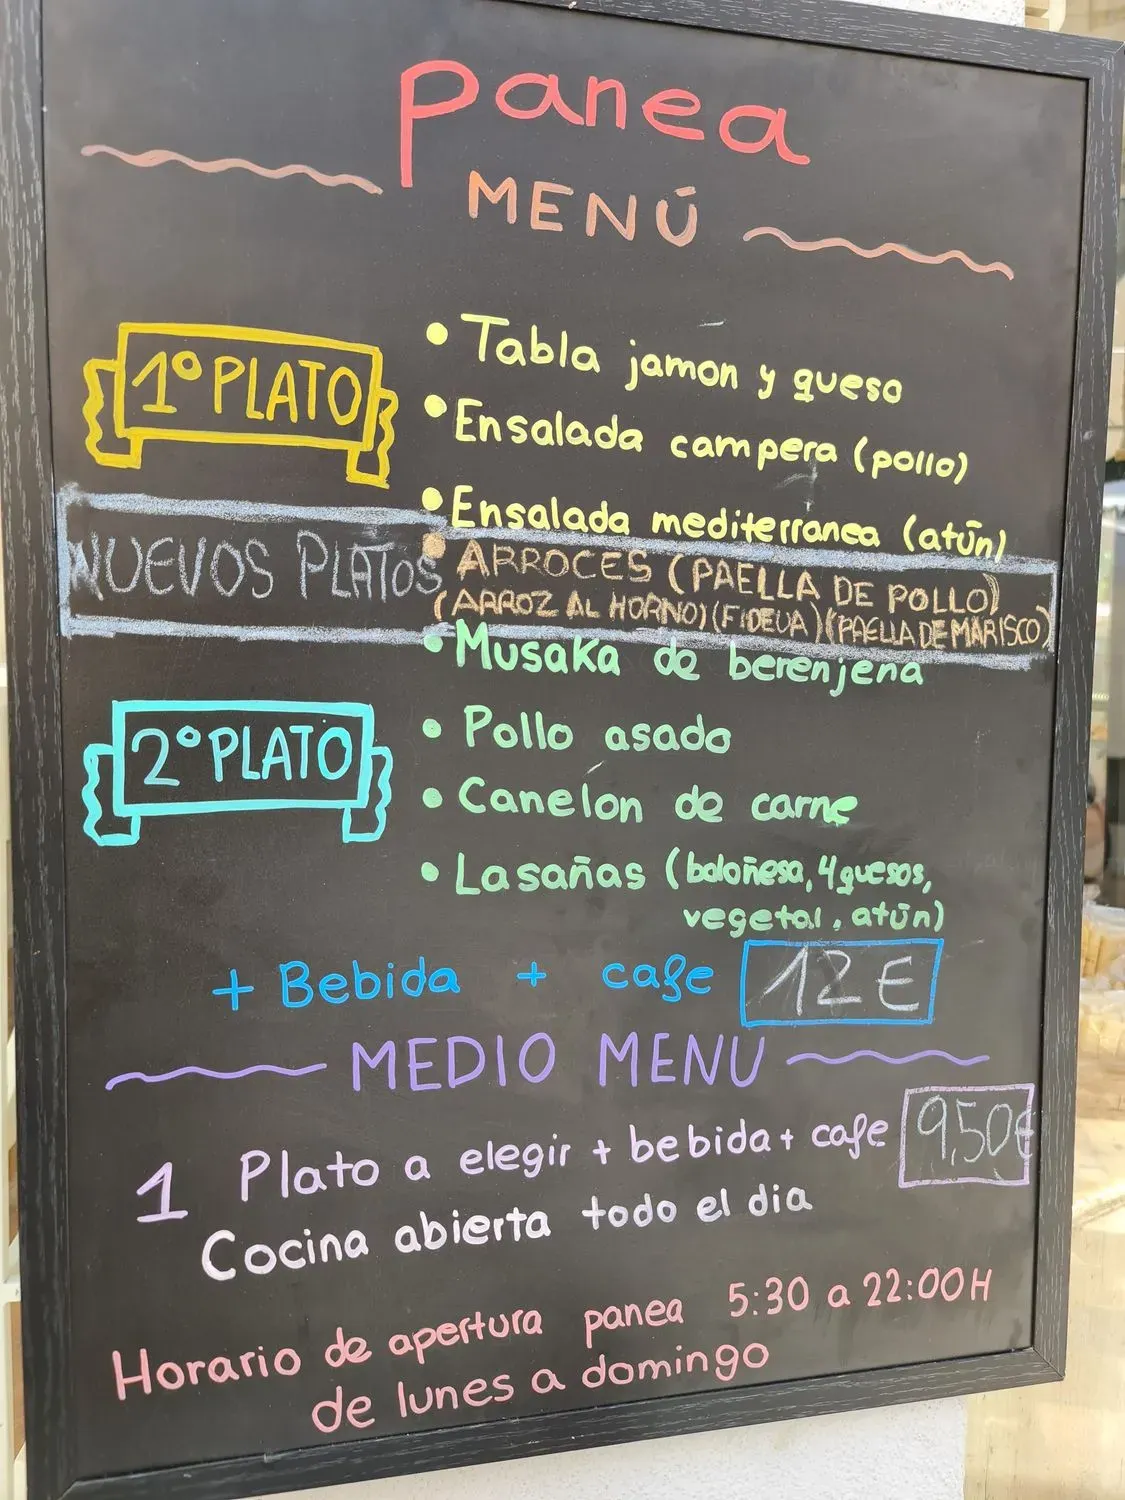 panea
MENÚ
1º PLATO
• Tabla jamon y queso
• Ensalada campera (pollo)
• Ensalada mediterranea (atún)
NUEVOS PLATOS
• ARROCES (PAELLA DE POLLO)
(ARROZ AL HORNO) (FIDEUA) (PAELLA DE MARISCO)
2º PLATO
• Musaka de berenjena
• Pollo asado
• Canelon de carne
• Lasañas (boloñesa, 4 quesos,
vegetal, atún)
+ Bebida + cafe 12€
MEDIO MENU
1 Plato a elegir + bebida + cafe 9,50€
Cocina abierta todo el dia
Horario de apertura panea 5:30 a 22:00H
de lunes a domingo